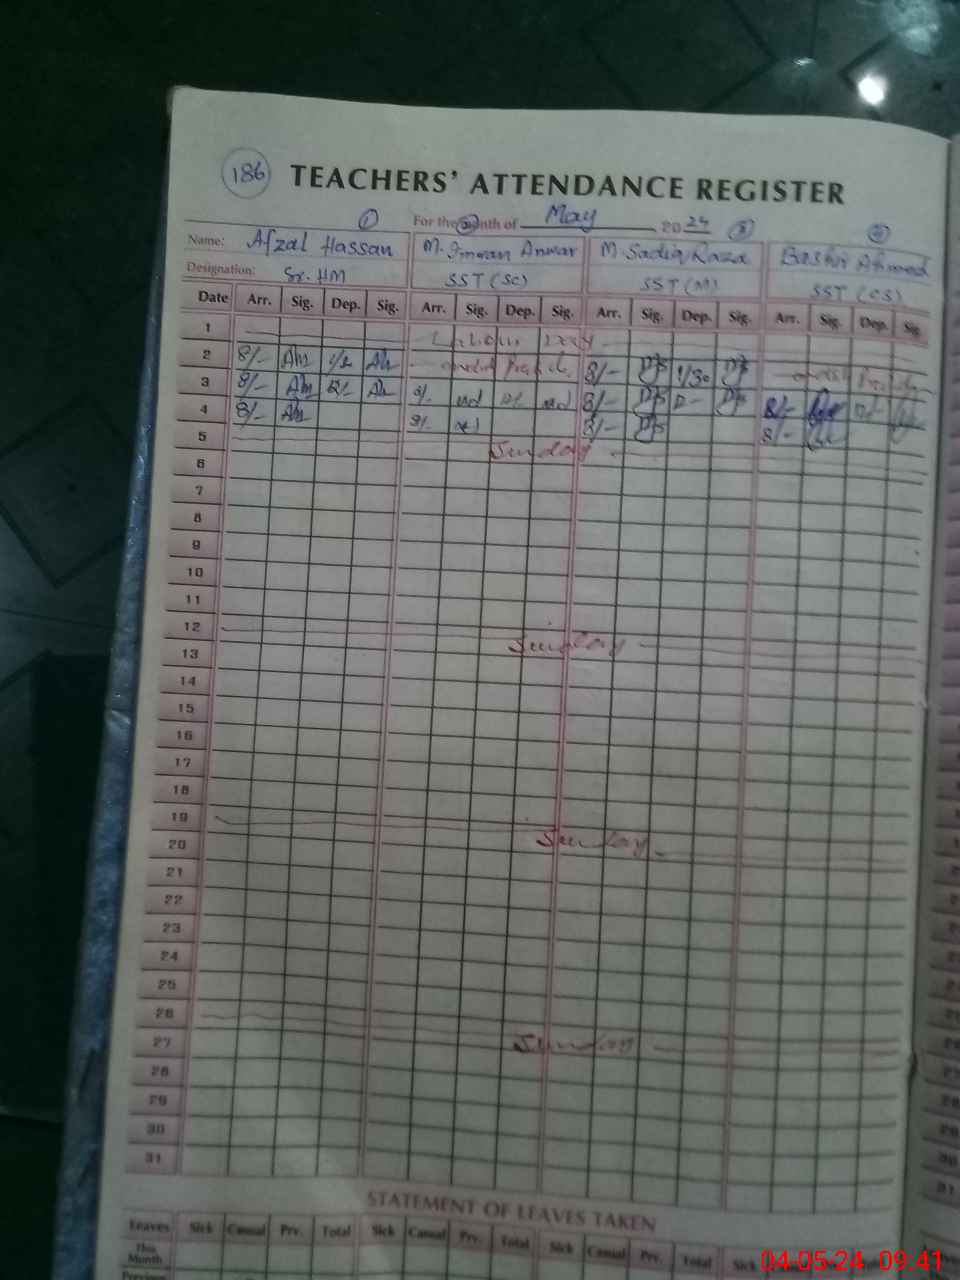 186
TEACHERS' ATTENDANCE REGISTER
For the month of May 2024
1 2 3 4
Name: Afzal Hassan M. Imran Anwar M. Sadiq Raza Bashir Ahmed
Designation: Sr. HM SST (SC) SST (M) SST (CS)
Date Arr. Sig. Dep. Sig. Arr. Sig. Dep. Sig. Arr. Sig. Dep. Sig. Arr. Sig. Dep. Sig.
1
2 8/- 8/- 1/30
3 8/- 8/- 8/- 8/-
4 8/- 8/- 8/- 8/-
5 Sunday
6
7
8
9
10
11
12 Sunday
13
14
15
16
17
18
19 Sunday
20
21
22
23
24
25
26 Sunday
27
28
29
30
31
STATEMENT OF LEAVES TAKEN
Leaves Sick Casual Prv. Total Sick Casual Prv. Total Sick Casual Prv. Total Sick
This Month
Previous
04-05-24 09:41